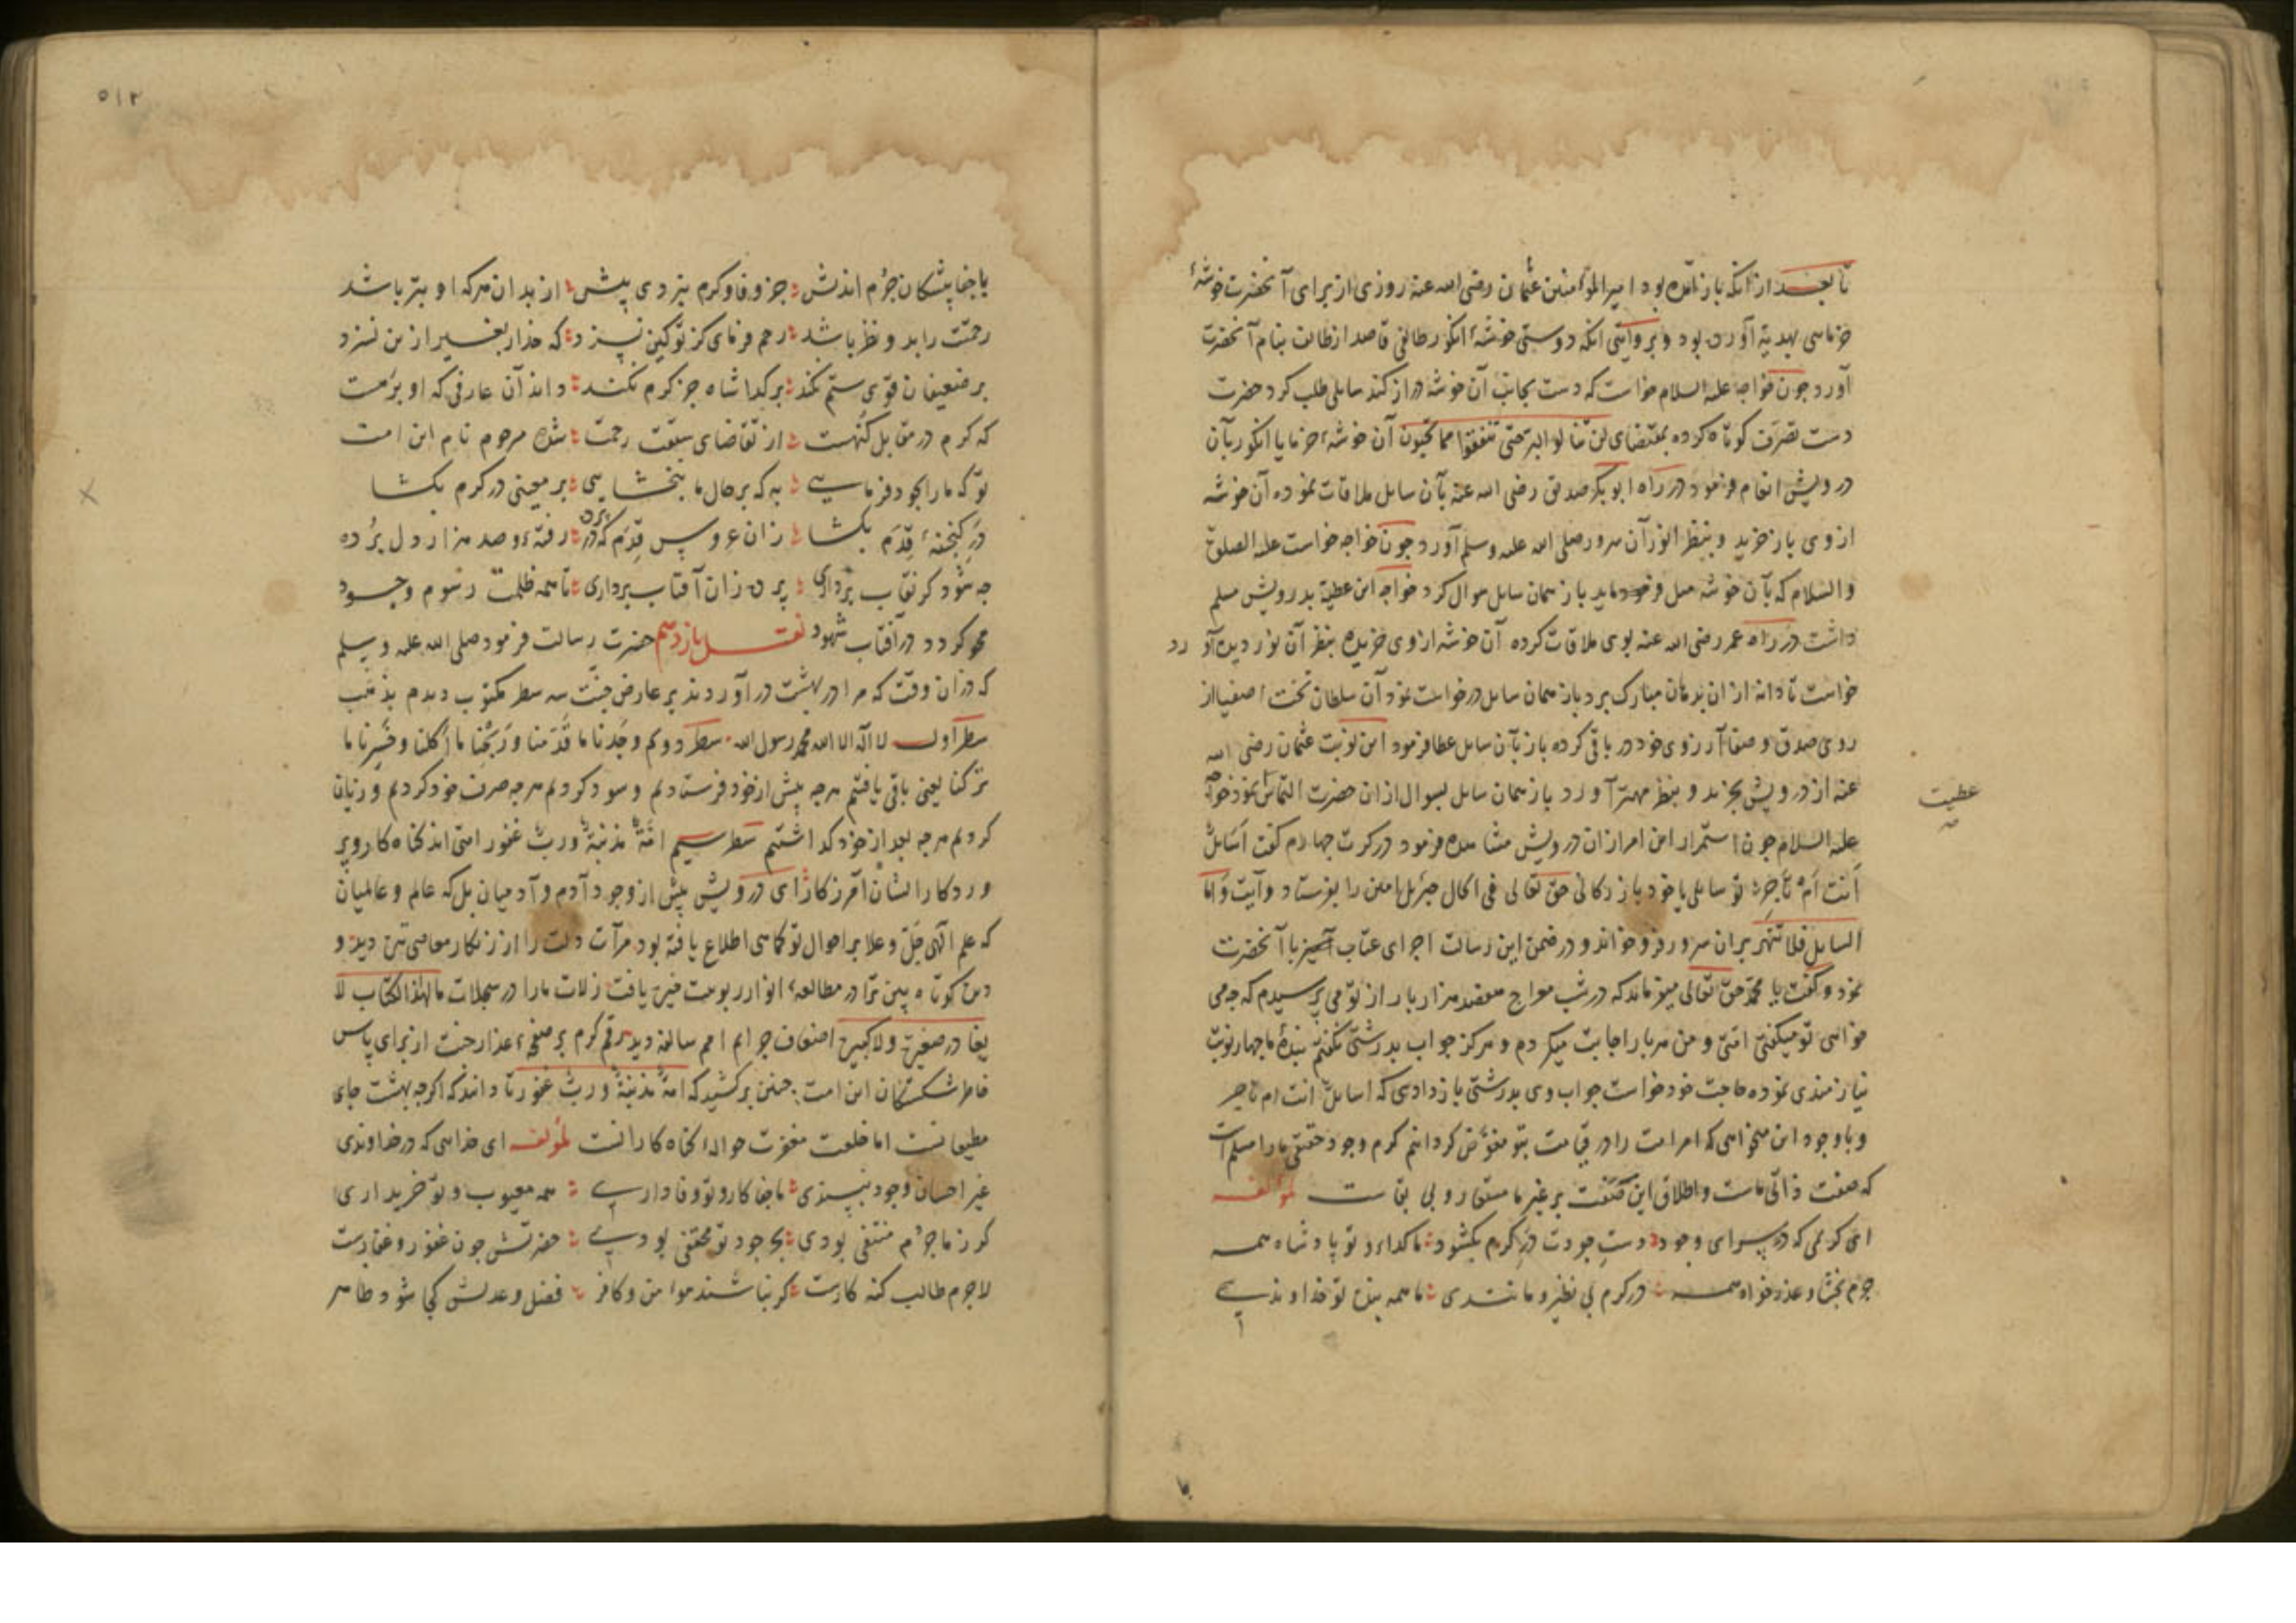 تا بعد از آنکه باز آمده بود امیرالمؤمنین عثمان رضی الله عنه روزی از برای آنحضرت خوشهٔ
خرمایی بهدیه آورده بود و بروایتی آنکه دوستی خوشهٔ انکور طایفی قاصد از طایف بنام آنحضرت
آورد جون خواجه علیه السلام خواست که دست بجانب آن خوشه دراز کند سایلی طلب کرد حضرت
دست تصرف کوتاه کرده بمقتضای لن تنالوا البر حتی تنفقوا مما تحبون آن خوشهٔ خرما یا انکور بآن
درویش انعام فرمود در راه ابو بکر صدیق رضی الله عنه بآن سایل ملاقات نموده آن خوشه
از وی باز خرید و بنظر انور آن سرور صلی الله علیه وسلم آورد جون خواجه خواست علیه الصلوة
والسلام که بآن خوشه میل فرماید باز همان سایل سوال کرد خواجه این عطیه بدرویش مسلم
داشت در راه عمر رضی الله عنه بوی ملاقات کرده آن خوشه از وی خریده بنظر آن نور دیده آورد
خواست تا دانه از ان بدهان مبارک برد باز همان سایل درخواست نمود آن سلطان تخت اصفیا از
روی صدق و صفا آرزوی خود در باقی کرده باز بآن سایل عطا فرمود این نوبت عثمان رضی الله
عنه از درویش بخرید و بنظر مهتر آورد باز همان سایل بسوال از ان حضرت التماس نمود خواجه
عطیت
علیه السلام جون استمرار این امر از ان درویش مشاهده فرمود در کرت جهارم کفت اسایل
أنت أم تاجر تو سایلی یا خود بازرکانی حق تعالی فی الحال جبرئیل امین را بفرستاد و آیت و اما
السایل فلا تنهر بران سرور فرو خواند و در ضمن این رسالت اجرای عتاب آمیز با آنحضرت
نمود و کفت یا محمد حق تعالی میفرماید که در شب معراج هفصد هزار بار از تو می پرسیدم که جه می
خواهی تو میکفتی امتی و من هر بار اجابت میکردم و هرکز جواب بدرشتی نکفتم بندهٔ ما جهار نوبت
نیازمندی نموده حاجت خود خواست جواب وی بدرشتی باز دادی که اسایل انت ام تاجر
و باوجود این میخواهی که امر امت را در قیامت بتو مفوض کردانیم کرم وجود حقیقی ما را مسلم است
که صفت ذاتی ماست و اطلاق این صفت بر غیر ما مستعار و بی بقاست لمؤلفه
ای کریمی که در سرای وجود دست جودت در کرم بکشود ما کدا و تو پادشاه همه
جرم بخشا و عذر خواه همه در کرم بی نظیر و مانندی ما همه بنده تو خداوندی
۵۱۲
با جفا پیشکان جرم اندیش جز وفا و کرم نبردی پیش از بدان هرکه او بتر باشد
رحمتت را بدو نظر باشد رحم فرمای کز تو کین نسزد که خدا را بغیر ازین نسزد
بر ضعیفان قوی ستم نکند بر کدا شاه جز کرم نکند داند آن عارفی که او بر مت
که کرم در مقابل کنهست از تقاضای سبقت رحمت شده مرحوم نام این امت
تو که ما را بجود فرمایی به که بر حال ما ببخشایی بر معینی در کرم بکشا
در کنجینهٔ قدم بکشا زان عروس قدم که در پرده رفته و صد هزار دل برده
جه شود کر نقاب برداری پرده زان آفتاب برداری تا همه ظلمت رسوم وجود
محو کردد در آفتاب شهود نقل یازدهم حضرت رسالت فرمود صلی الله علیه وسلم
که دران وقت که مرا در بهشت در آوردند بر عارض جنت سه سطر مکتوب دیدم بذهب
سطر اول لا اله الا الله محمد رسول الله سطر دوم وجدنا ما قدمنا و ربحنا ما اکلنا و خسرنا ما
ترکنا یعنی باقی یافتیم هرجه پیش از خود فرستادیم و سود کردیم هرجه صرف خود کردیم و زیان
کردیم هرجه بعد از خود کذاشتیم سطر سیم امة مذنبة ورب غفور امتی اند کناه کار و پرو
وردکار ایشان آمرزکار ای درویش پیش از وجود آدم و آدمیان بل که عالم و عالمیان
که علم الهی جل و علا بر احوال تو کماهی اطلاع یافته بود مرآت دلت را از زنکار معاصی تیره دید و
دیده کوتاه بین ترا در مطالعهٔ انوار ربوبیت خیره یافت زلات ما را در سجلات مالهذا الکتاب لا
یغادر صغیرة ولا کبیرة اضعاف جرایم امم سالفه دید رقم کرم بر صفحهٔ عذار جنت از برای پاس
خاطر شکستکان این امت جنین برکشید که امة مذنبة ورب غفور تا دانند که اکرجه بهشت جای
مطیعانست اما خلعت مغفرت حوالهٔ کناه کارانست لمؤلفه ای خدایی که در خداوندی
غیر احسان وجود نپسندی ما جفا کار و تو وفاداری همه معیوب و تو خریداری
کر ز ما جرم منتفی بودی بحر جود تو مختفی بودی حضرتش جون غفور و غفارست
لاجرم طالب کنه کارست کر نباشند مؤمن و کافر فضل و عدلش کجا شود ظاهر